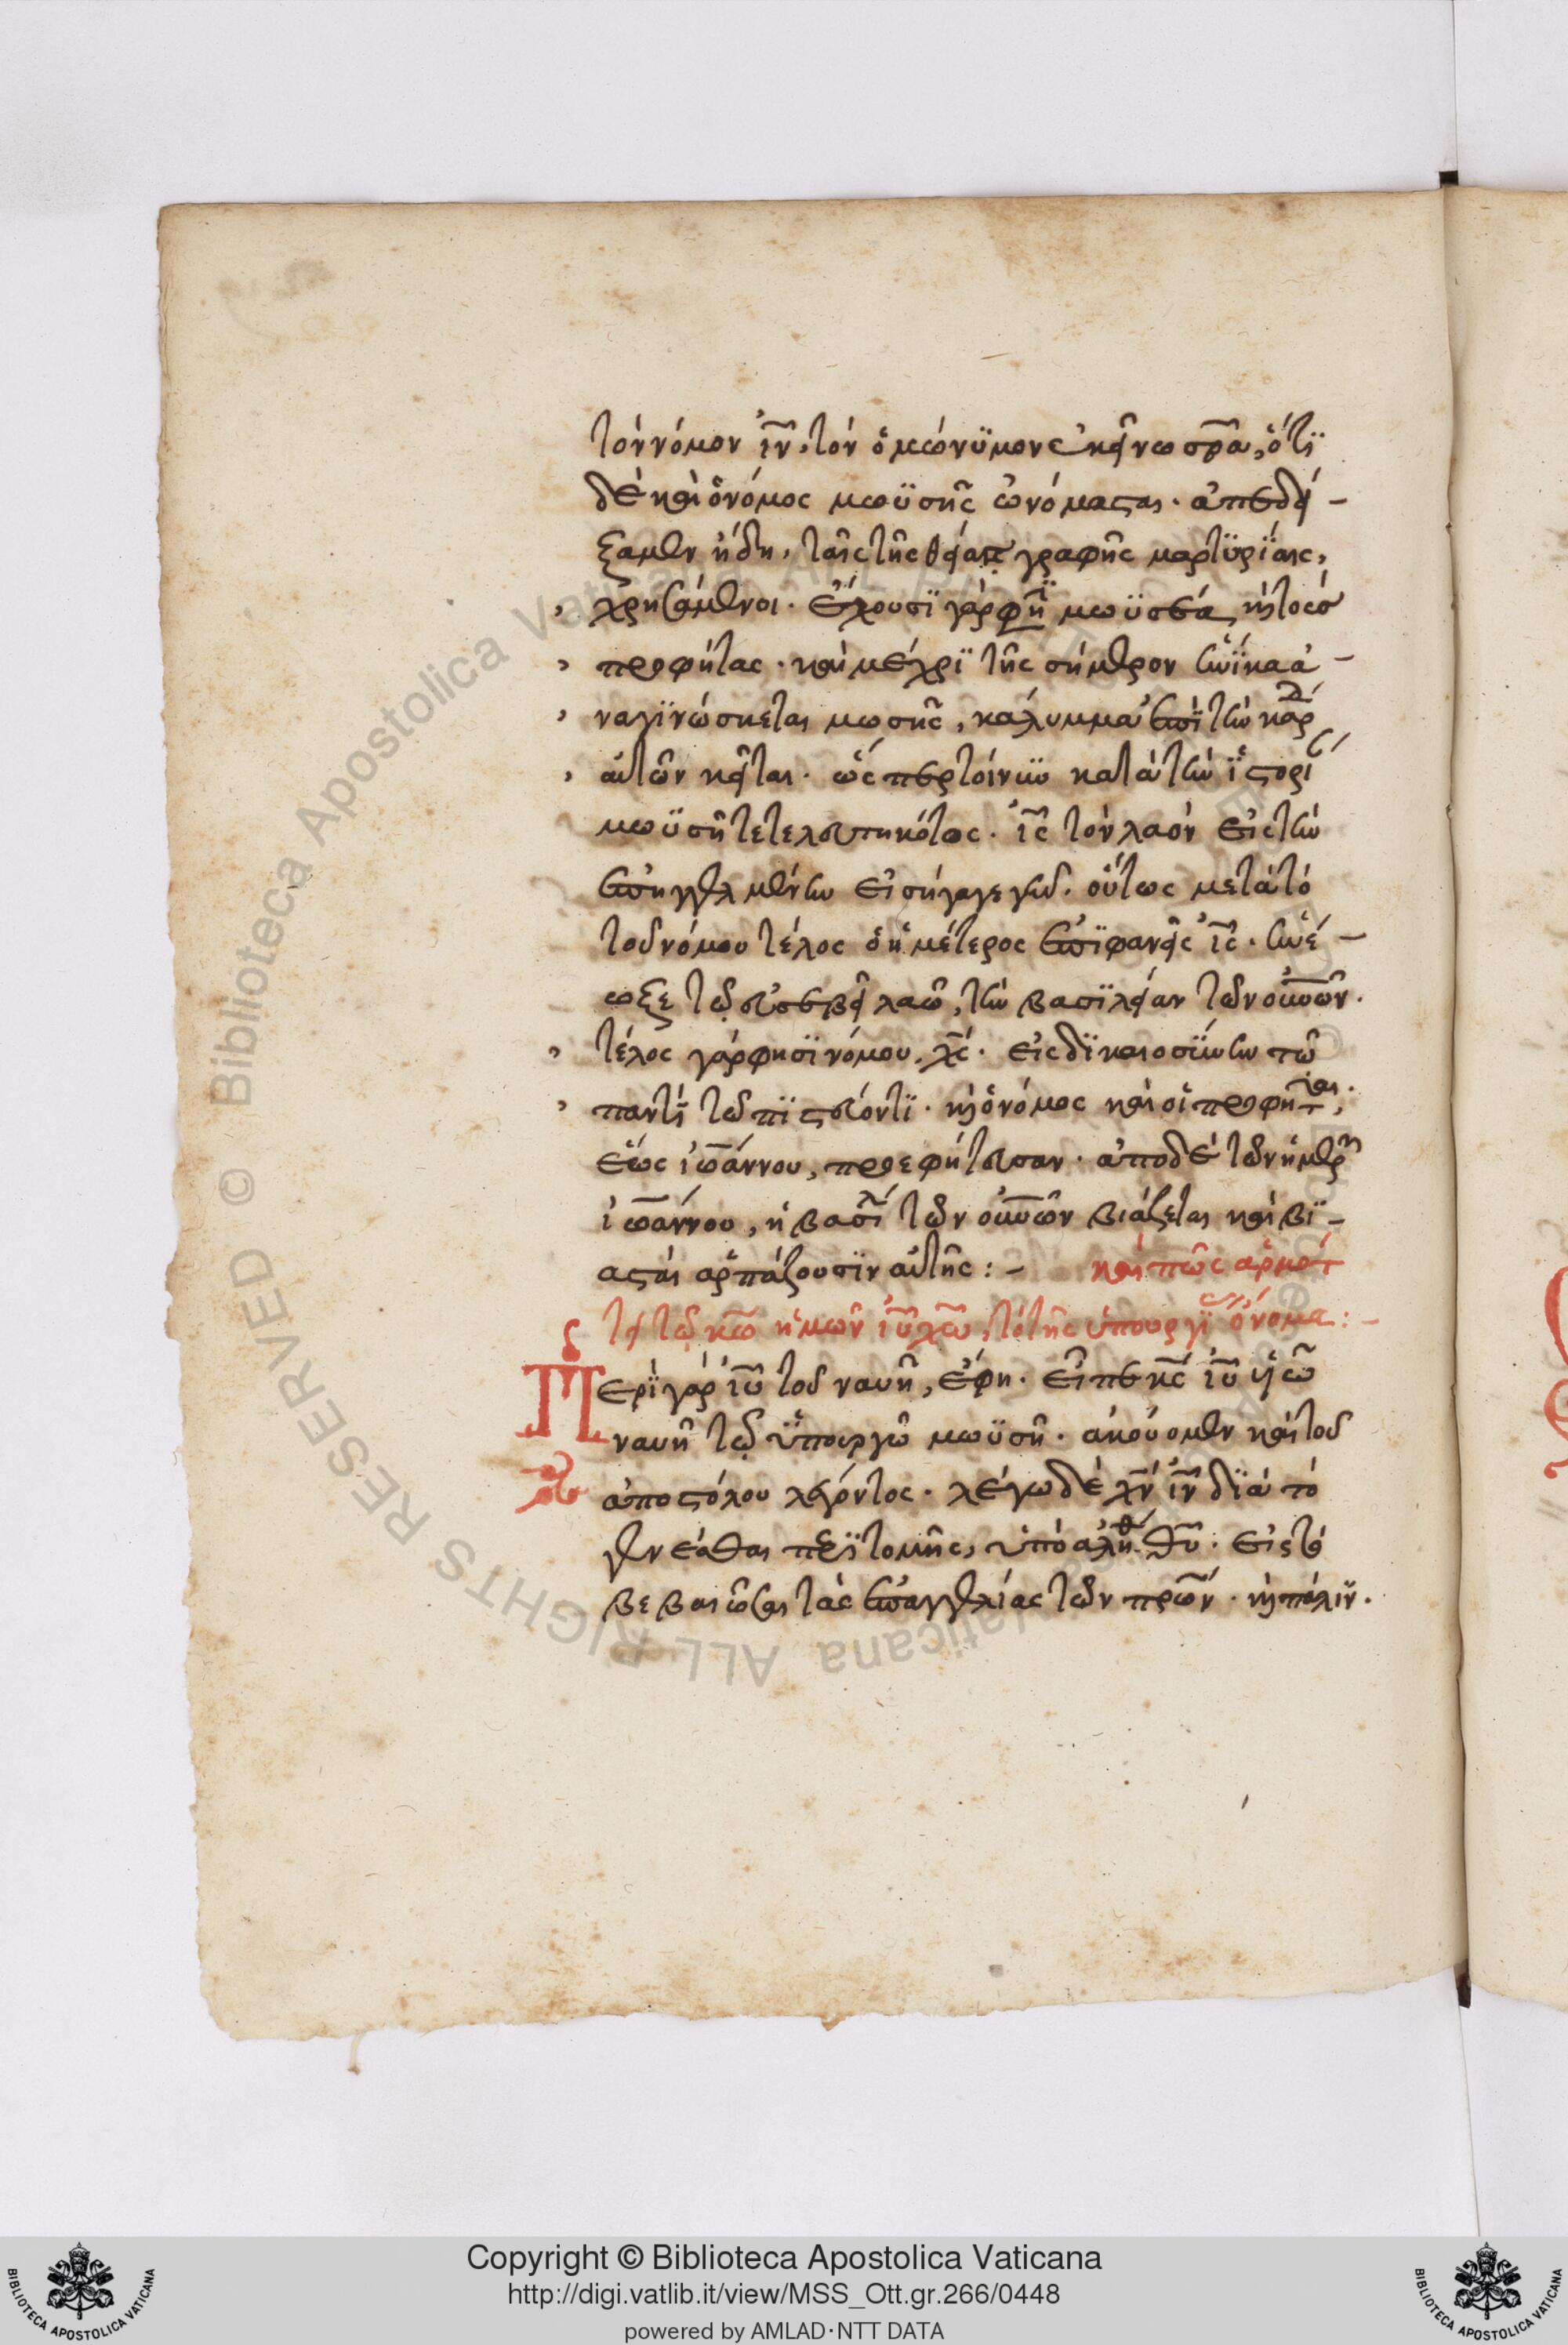 τὸν νόμον ἰν̅, τὸν ὁμώνϋμον ἐκείνω σρ̅α, ὅτϊ
δὲ καὶ ὁ νόμος μωϋσῆς ὠνόμασται. ἀπεδεί-
ξαμεν ἤδη, ταῖς τῆς θείας γραφῆς μαρτϋρΐαις,
χρησάμενοι. ἔχουσϊ γάρ φησϊ μωϋσέα, καὶ τοὺσ
προφήτας. καὶ μέχρϊ τῆς σήμερον ἡνΐκα ἀ-
ναγϊνώσκεται μωσῆς, κάλυμμα ἐπϊ τὴν καρδί
αὐτῶν κεῖται. ὥσπερ τοίνϋν κατὰ τὴν ἱ̈στορί
μωϋσῆ τετελευτηκότος. ις̅ τὸν λαὸν εἰς τὴν
ἐπηγγελμένην εἰσήγαγε γῆν. οὕτως μετὰ τὸ
τοῦ νόμου τέλος ὁ ἡμέτερος ἐπϊφανεὶς ις̅. ἠνέ-
ωξε τῷ εὐσεβεῖ λαῷ, τὴν βασϊλείαν τῶν οὐν̅ῶν.
τέλος γάρ φησϊ νόμου, χς̅. εἰς δϊκαιοσΰνην τῶ
παντὶ τῷ πϊστεύοντϊ. καὶ ὁ νόμος καὶ οἱ προφῆται,
ἕως ἰω̅άννου, προεφήτευσαν. ἀπο δὲ τῶν ἡμερῶν
ἰω̅άννου, ἡ βασϊλ τῶν οὐν̅ῶν βιάζεται καὶ βϊ-
ασταὶ ἁρπάζουσϊν αὐτῆς: - καὶ πῶς ἁρμότ
τει τῷ κω̅ ἡμῶν ιυ̅ χω̅, τὸ τῆς ὑπουργί ὄνομα: -
Περϊ γὰρ ιυ̅ τοῦ ναυῆ, ἔφη. εἶπε κς̅ ιυ̅ υἱῶ
ναυῆ τῷ ὑ̈πουργῶ μωϋσῆ. ἀκούομεν καὶ τοῦ
ἀποστόλου λέγοντος. λέγω δὲ χν̅ ιν̅ δϊὰ τὸ
γενέσθαι περϊτομῆς, ὑπὸ ἀληθ θυ̅. εἰς τὸ
βεβαιῶσαι τὰς ἐπαγγελίας τῶν πρω̅ν. καὶ πάλϊν.
Copyright © Biblioteca Apostolica Vaticana
http://digi.vatlib.it/view/MSS_Ott.gr.266/0448
powered by AMLAD·NTT DATA